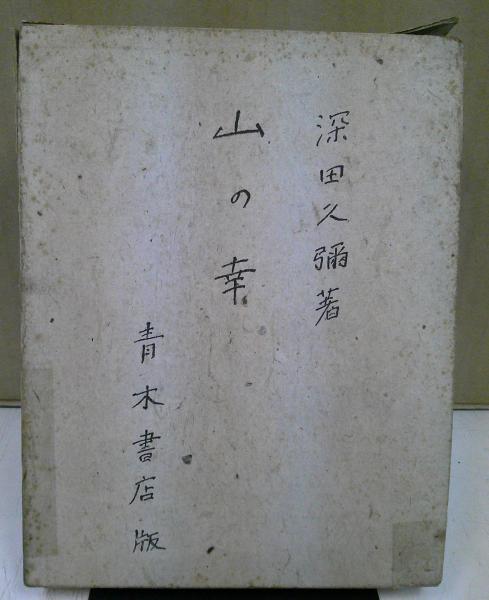 深田久彌著
山の幸
青木書店版